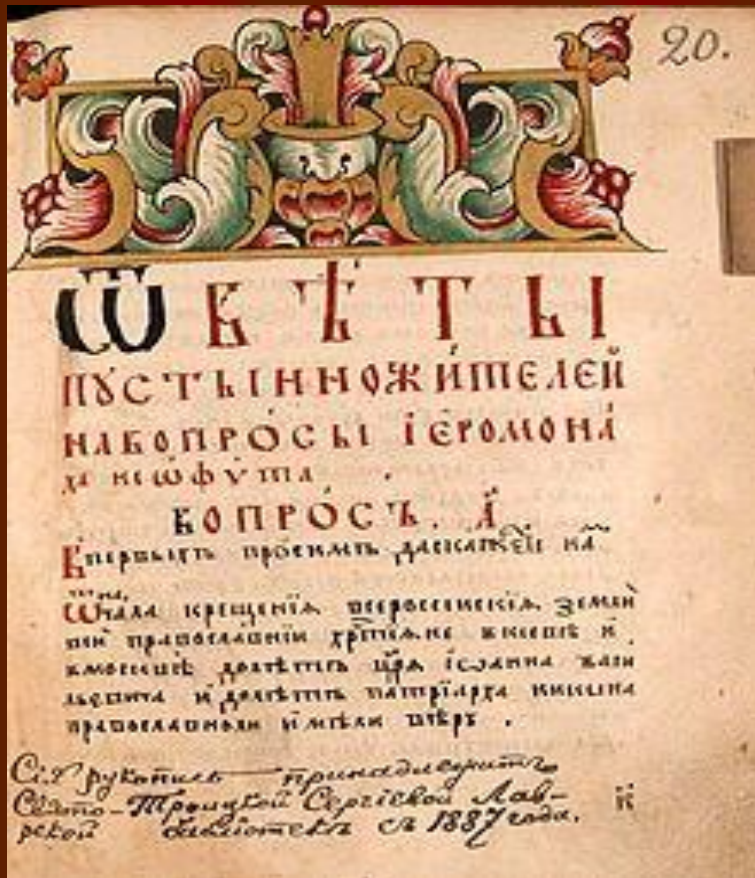 20.
Ѿвѣ́ты
пꙋстыннож́ителей
на вопро́сы і҆еромона́
ха неѡфѵ́та
вопро́съ. а҃
Впервыхъ про́симъ
крещенїѧ всеросси́искїѧ земли́
православнїи хрⷭ҇тїѧне в кїевѣ и҆
в москвѣ до лѣ́тъ цр҃ѧ і҆ѡанна васи
льевича и҆ до лѣ́тъ патрїарха никона
православнꙋю и҆мѣ́ли вѣ́рꙋ .
Сія рукопись принадлежитъ
Свято-Троицкой Сергіевой Лав-
рской библіотекѣ съ 1887 года.